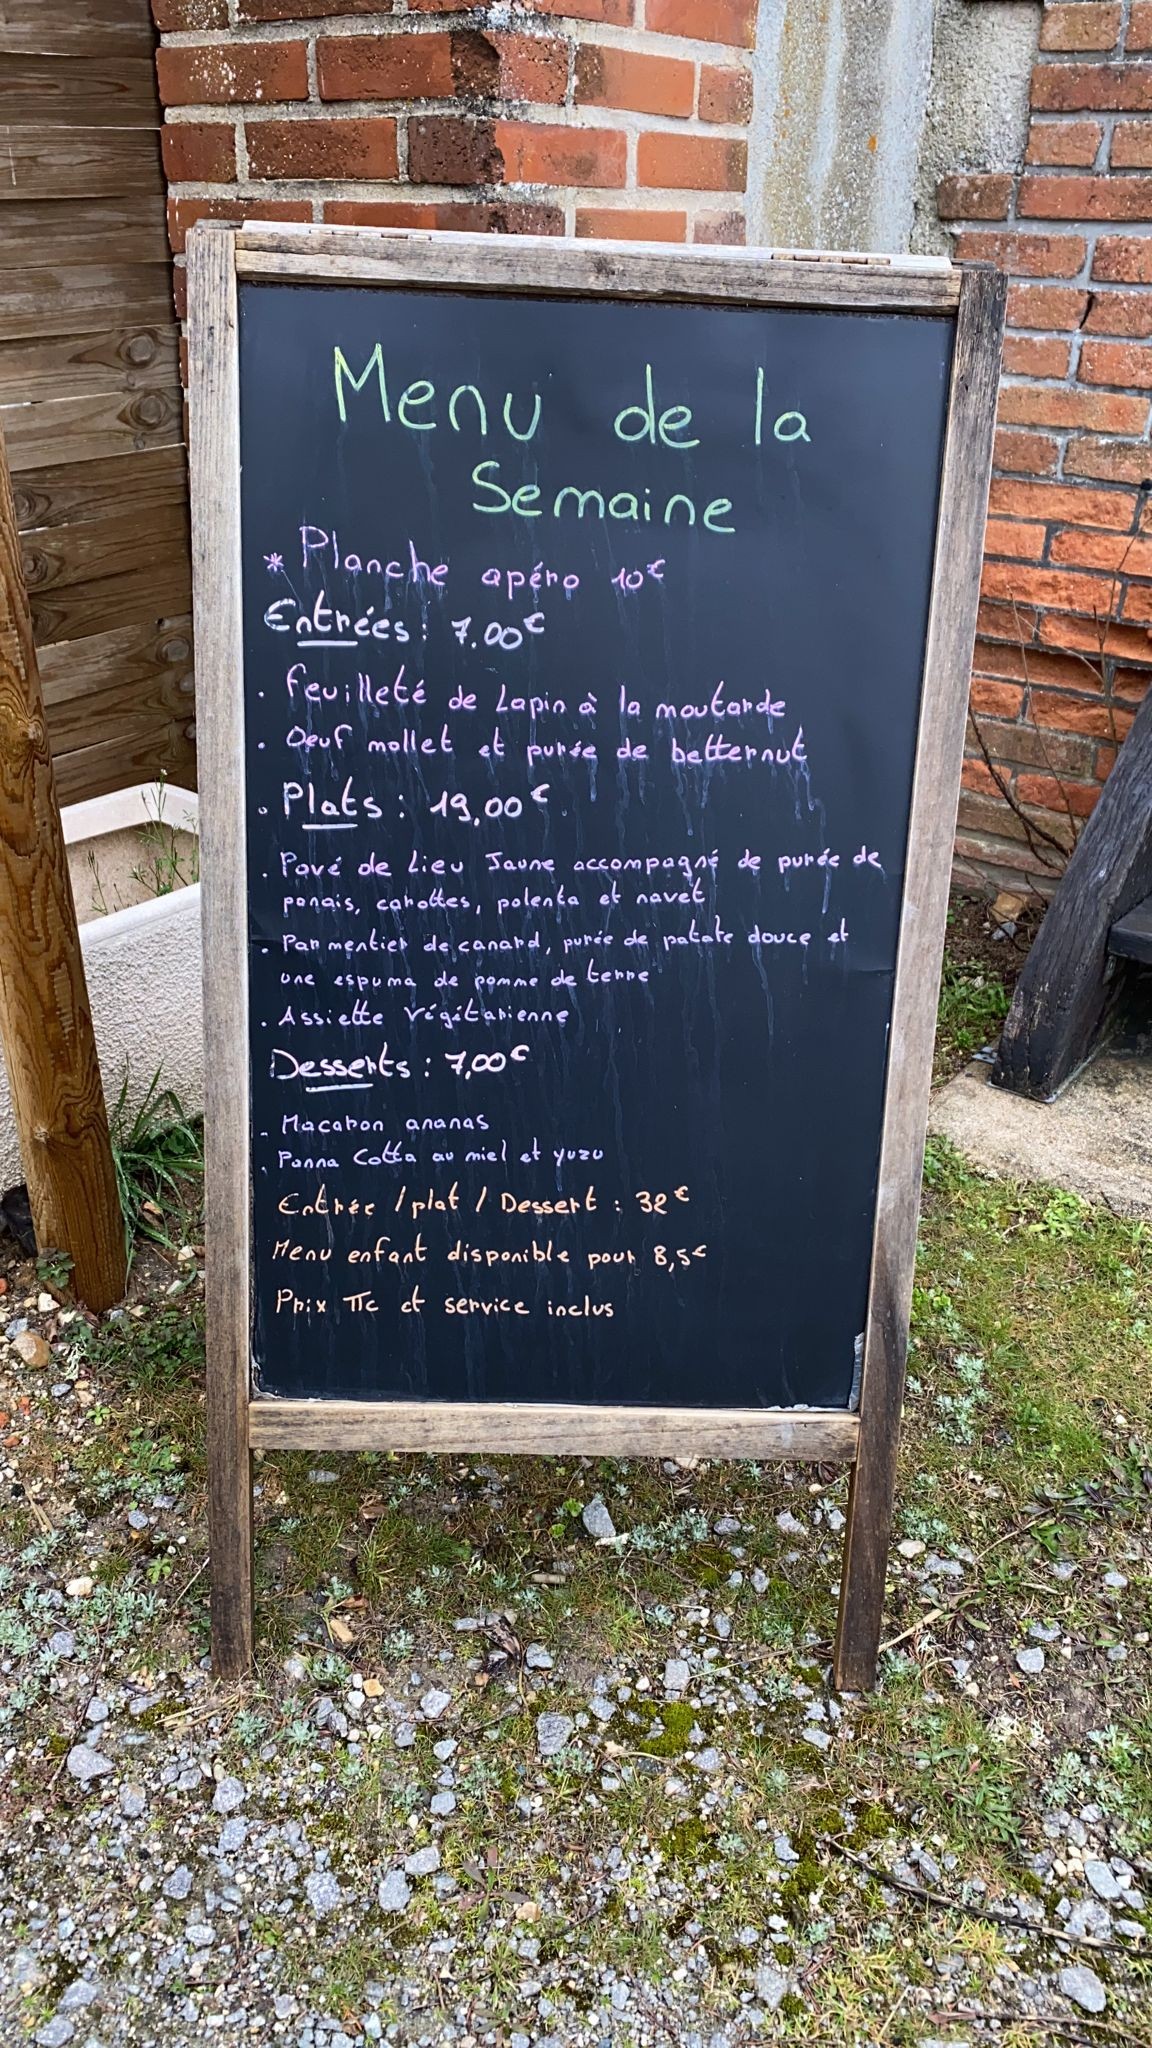 Menu de la
Semaine
* Planche apéro 10€
Entrées : 7.00€
. feuilleté de Lapin à la moutarde
. Oeuf mollet et purée de betternut
. Plats : 19,00€
. Pavé de Lieu Jaune accompagné de purée de
panais, carottes, polenta et navet
. Parmentier de canard, purée de patate douce et
une espuma de pomme de terre
. Assiette végétarienne
Desserts : 7,00€
. Macaron ananas
. Panna Cotta au miel et yuzu
Entrée / plat / Dessert : 32€
Menu enfant disponible pour 8,5€
Prix TTc et service inclus